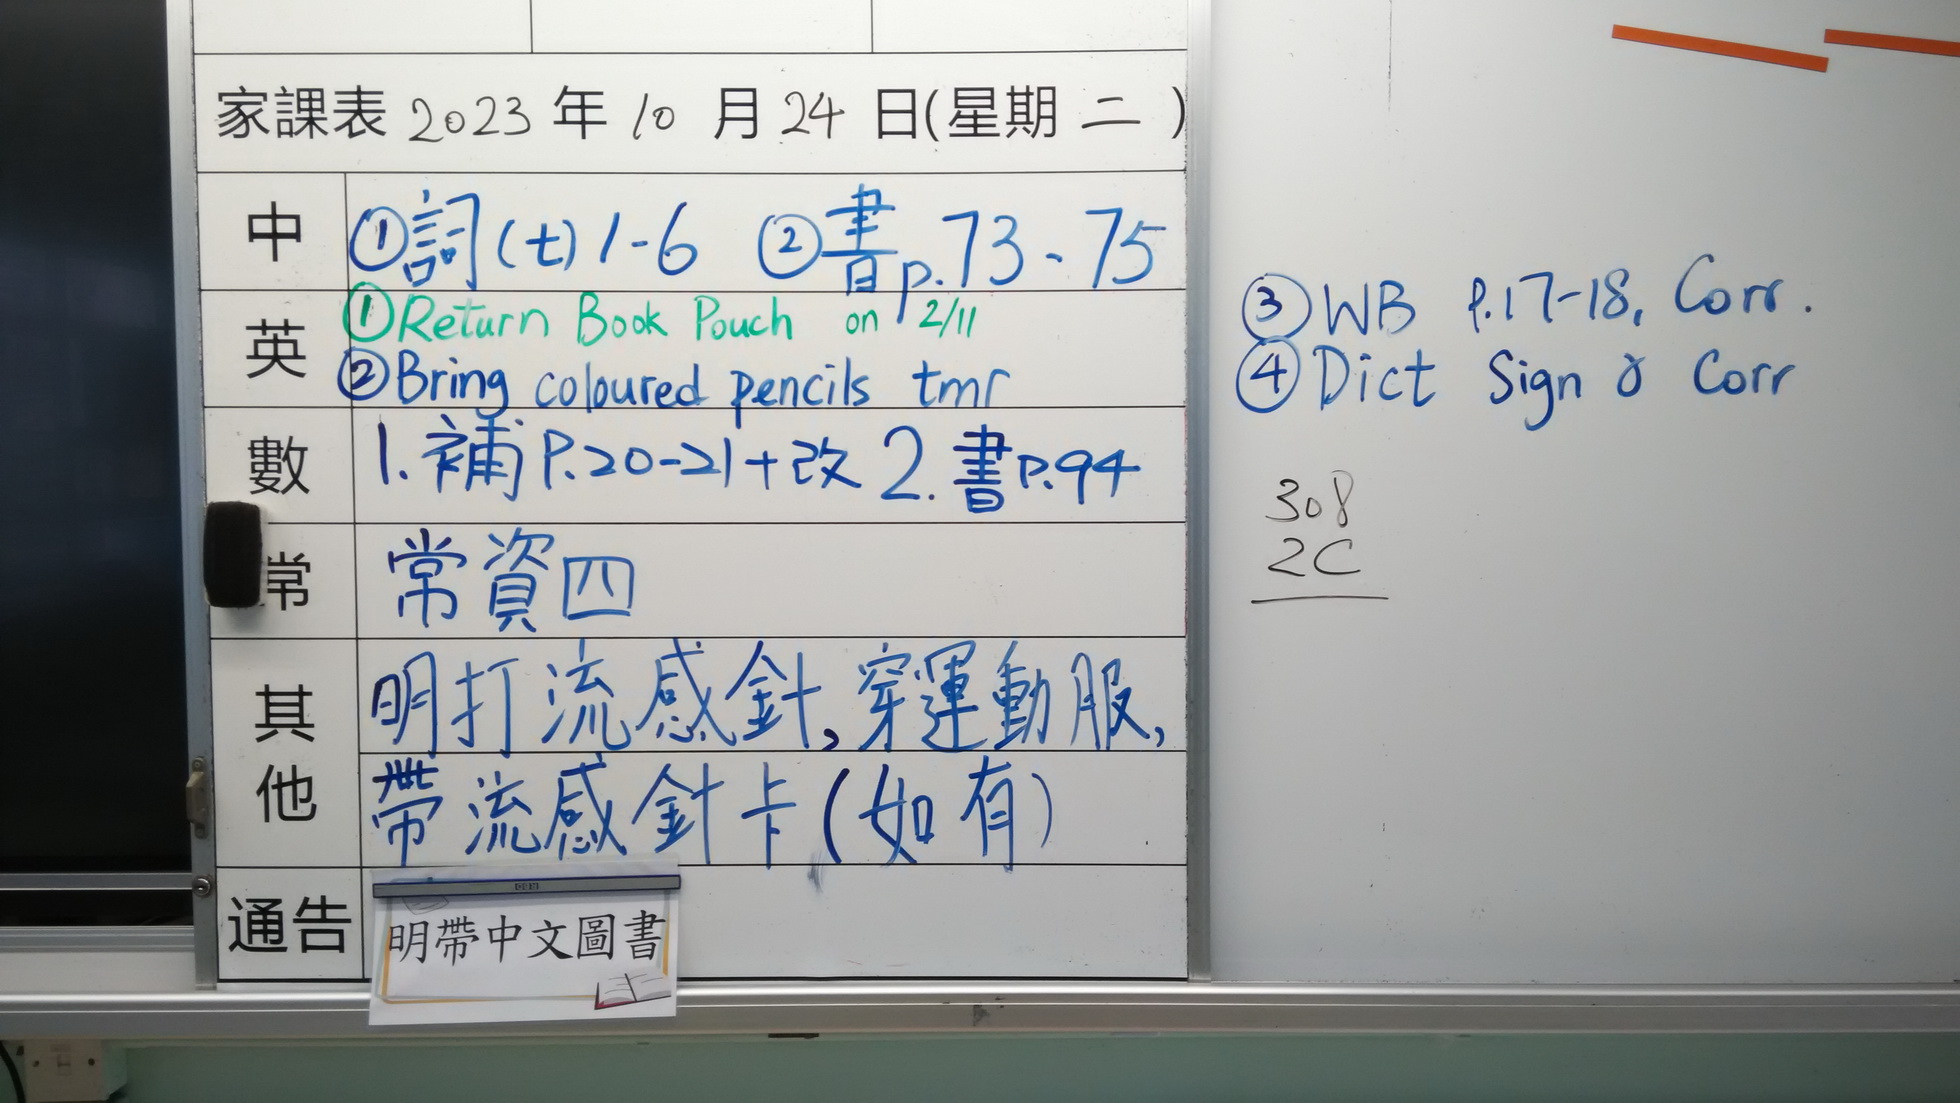 家課表 2023 年 10 月 24 日(星期 二 )
中 ①詞(七) 1-6 ②書p.73、75
英 ①Return Book Pouch on 2/11
②Bring coloured pencils tmr
③WB P.17-18, Corr.
④Dict Sign & Corr
數 1. 補P.20-21+改 2. 書P.94
常 常資四
其他 明打流感針,穿運動服,
帶流感針卡(如有)
通告 明帶中文圖書
308
2C